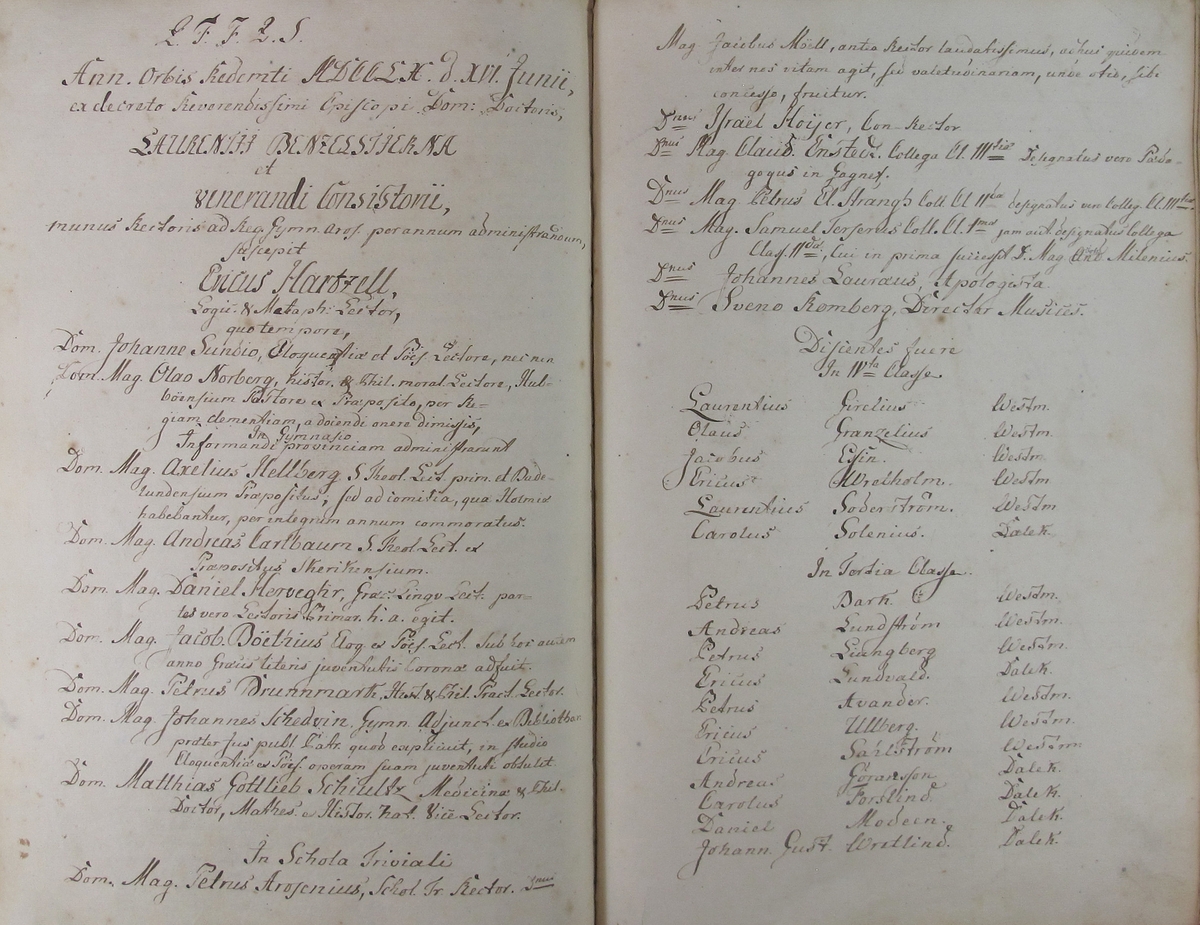 Ann. Orbis Redemti MDCCLX. d. XVI. Junii,
ex decreto Reverendissimi Episcopi Dom: Doctoris,
LAURENTII BENZELSTIERNA
et
venerandi Consistorii,
munus Rectoris ad Reg. Gymn. Aros. per annum administrandum,
suscepit
Ericus Hartzell,
Logic. & Metaph: Lector,
quo tempore,
Dom. Johanne Sundio, Eloquentiæ et Poës. Lectore, nec non
Dom. Mag. Olao Norberg, histor. & Phil. moral. Lectore, Hub-
boënsium Pastore & Præposito, per Re-
giam clementiam, a docendi onere dimissis,
In Gymnasio
Informandi provinciam administrarunt
Dom. Mag. Axelius Hellberg S. Theol. Lect. prim. et Bade-
lundensium Præpositus, sed ad comitia, quæ Holmiæ
habebantur, per integrum annum commoratus.
Dom. Mag. Andreas Carlbaum S. Theol. Lect. &
Præpositus Skerikensium.
Dom. Mag. Daniel Herweghr, Græc. Lingv. Lect. par-
tes vero Lectoris Primar. h. a. egit.
Dom. Mag. Jacob. Böethius Eloq. & Poës. Lect. Sub hoc autem
anno Græcis literis juventutis Coronæ adfuit.
Dom. Mag. Petrus Brunnmark, Hist. & Phil. Pract. Lector.
Dom. Mag. Johannes Schedvin, Gymn. Adjunct. & Bibliothec.
præter Jus publ. Patr. quod explicuit, in studio
Eloquentiæ & Poës. operam suam juventuti obtulit.
Dom. Matthias Gottlieb Schultz Medicinæ & Phil.
Doctor, Mathes. & Histor. nat. Vice Lector.
In Schola Triviali
Dom. Mag. Petrus Arosenius, Schol. Tr. Rector. Dnus
Mag. Jacobus Möll, antea Rector laudatissimus, adhuc quidem
inter nos vitam agit, sed valetudinariam, unde otio, sibi
concesso, fruitur.
Dnus Israël Hoijer, Con-Rector
Dnus Mag. Claud. Enstedt. Collega Cl. IIItiæ designatus vero Pæda-
gogus in Gagnef.
Dnus Mag Petrus El. Strangh Coll. Cl. IIdæ designatus vero Colleg. Cl. IIItiæ.
Dnus Mag. Samuel Terserus Coll. Cl. Imæ jam aut. designatus Collega
Class. IIdæ, cui in prima successit D. Mag. And. Milenius.
Dnus Johannes Lauræus, Apologista.
Dnus Sveno Romberg, Director Musices.
Discentes fuere
In IVta Classe
Laurentius Girelius Westm.
Olaus Granzelius Westm.
Jacobus Essin. Westm.
Ericus Wretholm. Westm
Laurentius Söderström. Westm
Carolus Solenius. Dalek.
In Tertia Classe.
Petrus Bark. Westm.
Andreas Lundström Westm.
Petrus Liungberg Westm.
Ericus Lundvald. Dalek.
Petrus Avander. Westm.
Ericus Ullberg. Westm.
Ericus Sahlström Westm
Andreas Göransson Dalek.
Carolus Forslind. Dalek.
Daniel Modeen. Dalek.
Johann. Gust. Wretlind. Dalek.